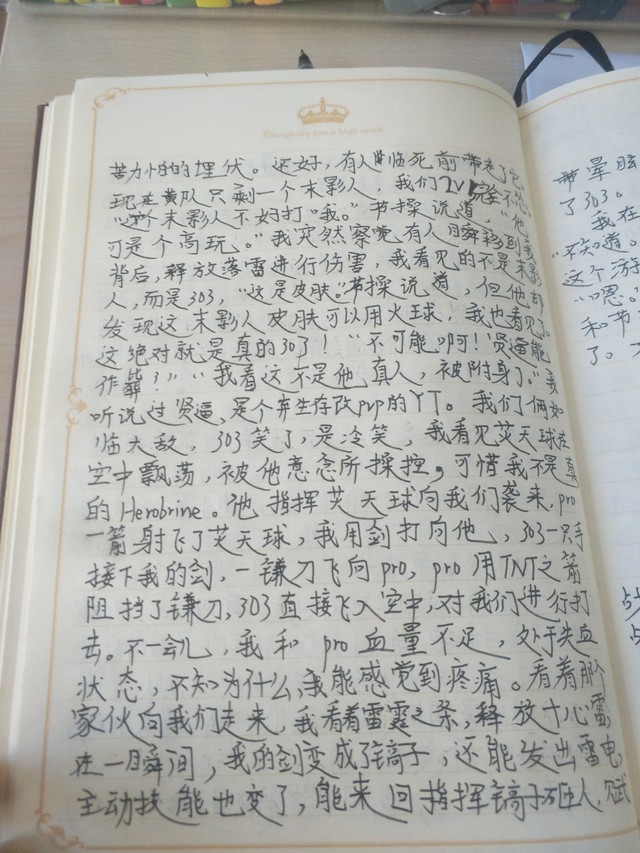 Everybody has a high mind
苦力怕的埋伏。还好,有人临死前带走了它。
现在黄队只剩一个末影人,我们2V1完全不
"这个末影人不好打哦。"节操说道,"他
可是个高玩。"我突然察觉有人瞬移到我
背后,释放落雷进行伤害,我看见的不是末影
人,而是303,"这是皮肤。"节操说道,但他却
发现这末影人皮肤可以用火球,我也看见了。
这绝对就是真的303了!"不可能啊!贤逼能
作弊?""我看这不是他真人,被附身了。"我
听说过贤逼,是个弃生存改pvp的YT。我们俩如
临大敌,303笑了,是冷笑,我看见苂天球在
空中飘荡,被他意念所操控。可惜我不是真
的Herobrine。他指挥苂天球向我们袭来,pro
一箭射飞了苂天球,我用剑打向他,303一只手
接下我的剑,一镰刀飞向pro,pro用TNT之箭
阻挡了镰刀,303直接飞入空中,对我们进行打
击。不一会儿,我和pro血量不足,处于失血
状态,不知为什么,我能感觉到疼痛。看着那个
家伙向我们走来,我看着雷霆之条,释放十心雷,
在一瞬间,我的剑变成了镐子,还能发出雷电,
主动技能也变了,能来回指挥镐子砸人,
带晕眩
了303。
我在
"不知道
这个游
"嗯。"
和节
了。